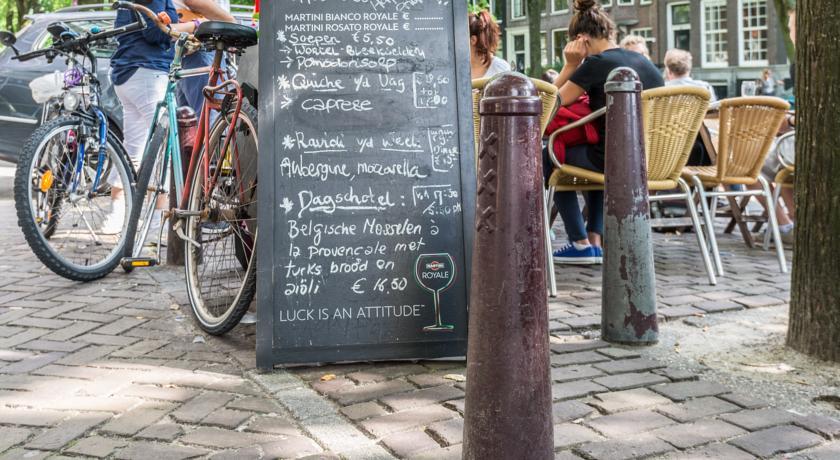 MARTINI BIANCO ROYALE €
MARTINI ROSATO ROYALE €
* Soepen € 5,50
→ Wortel-Bleekselderij
→ Pomodorisoep
* Quiche vd Dag
→ caprese
* Ravioli vd week:
Aubergine, mozzarella
* Dagschotel:
Belgische Mosselen à
la Provencale met
turks brood en
aïöli € 16,50
MARTINI
ROYALE
LUCK IS AN ATTITUDE™